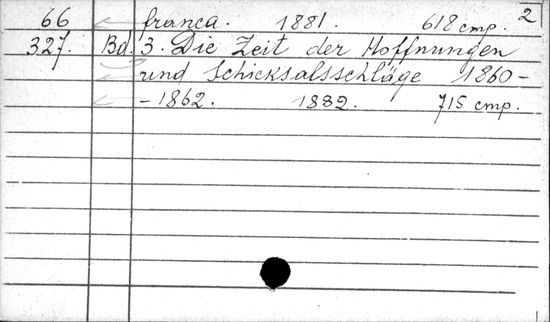 2
66 franca. 1881. 618 стр.
327. Bd. 3. Die Zeit der Hoffnungen
und Schicksalsschläge 1860-
-1862. 1882. 715 стр.